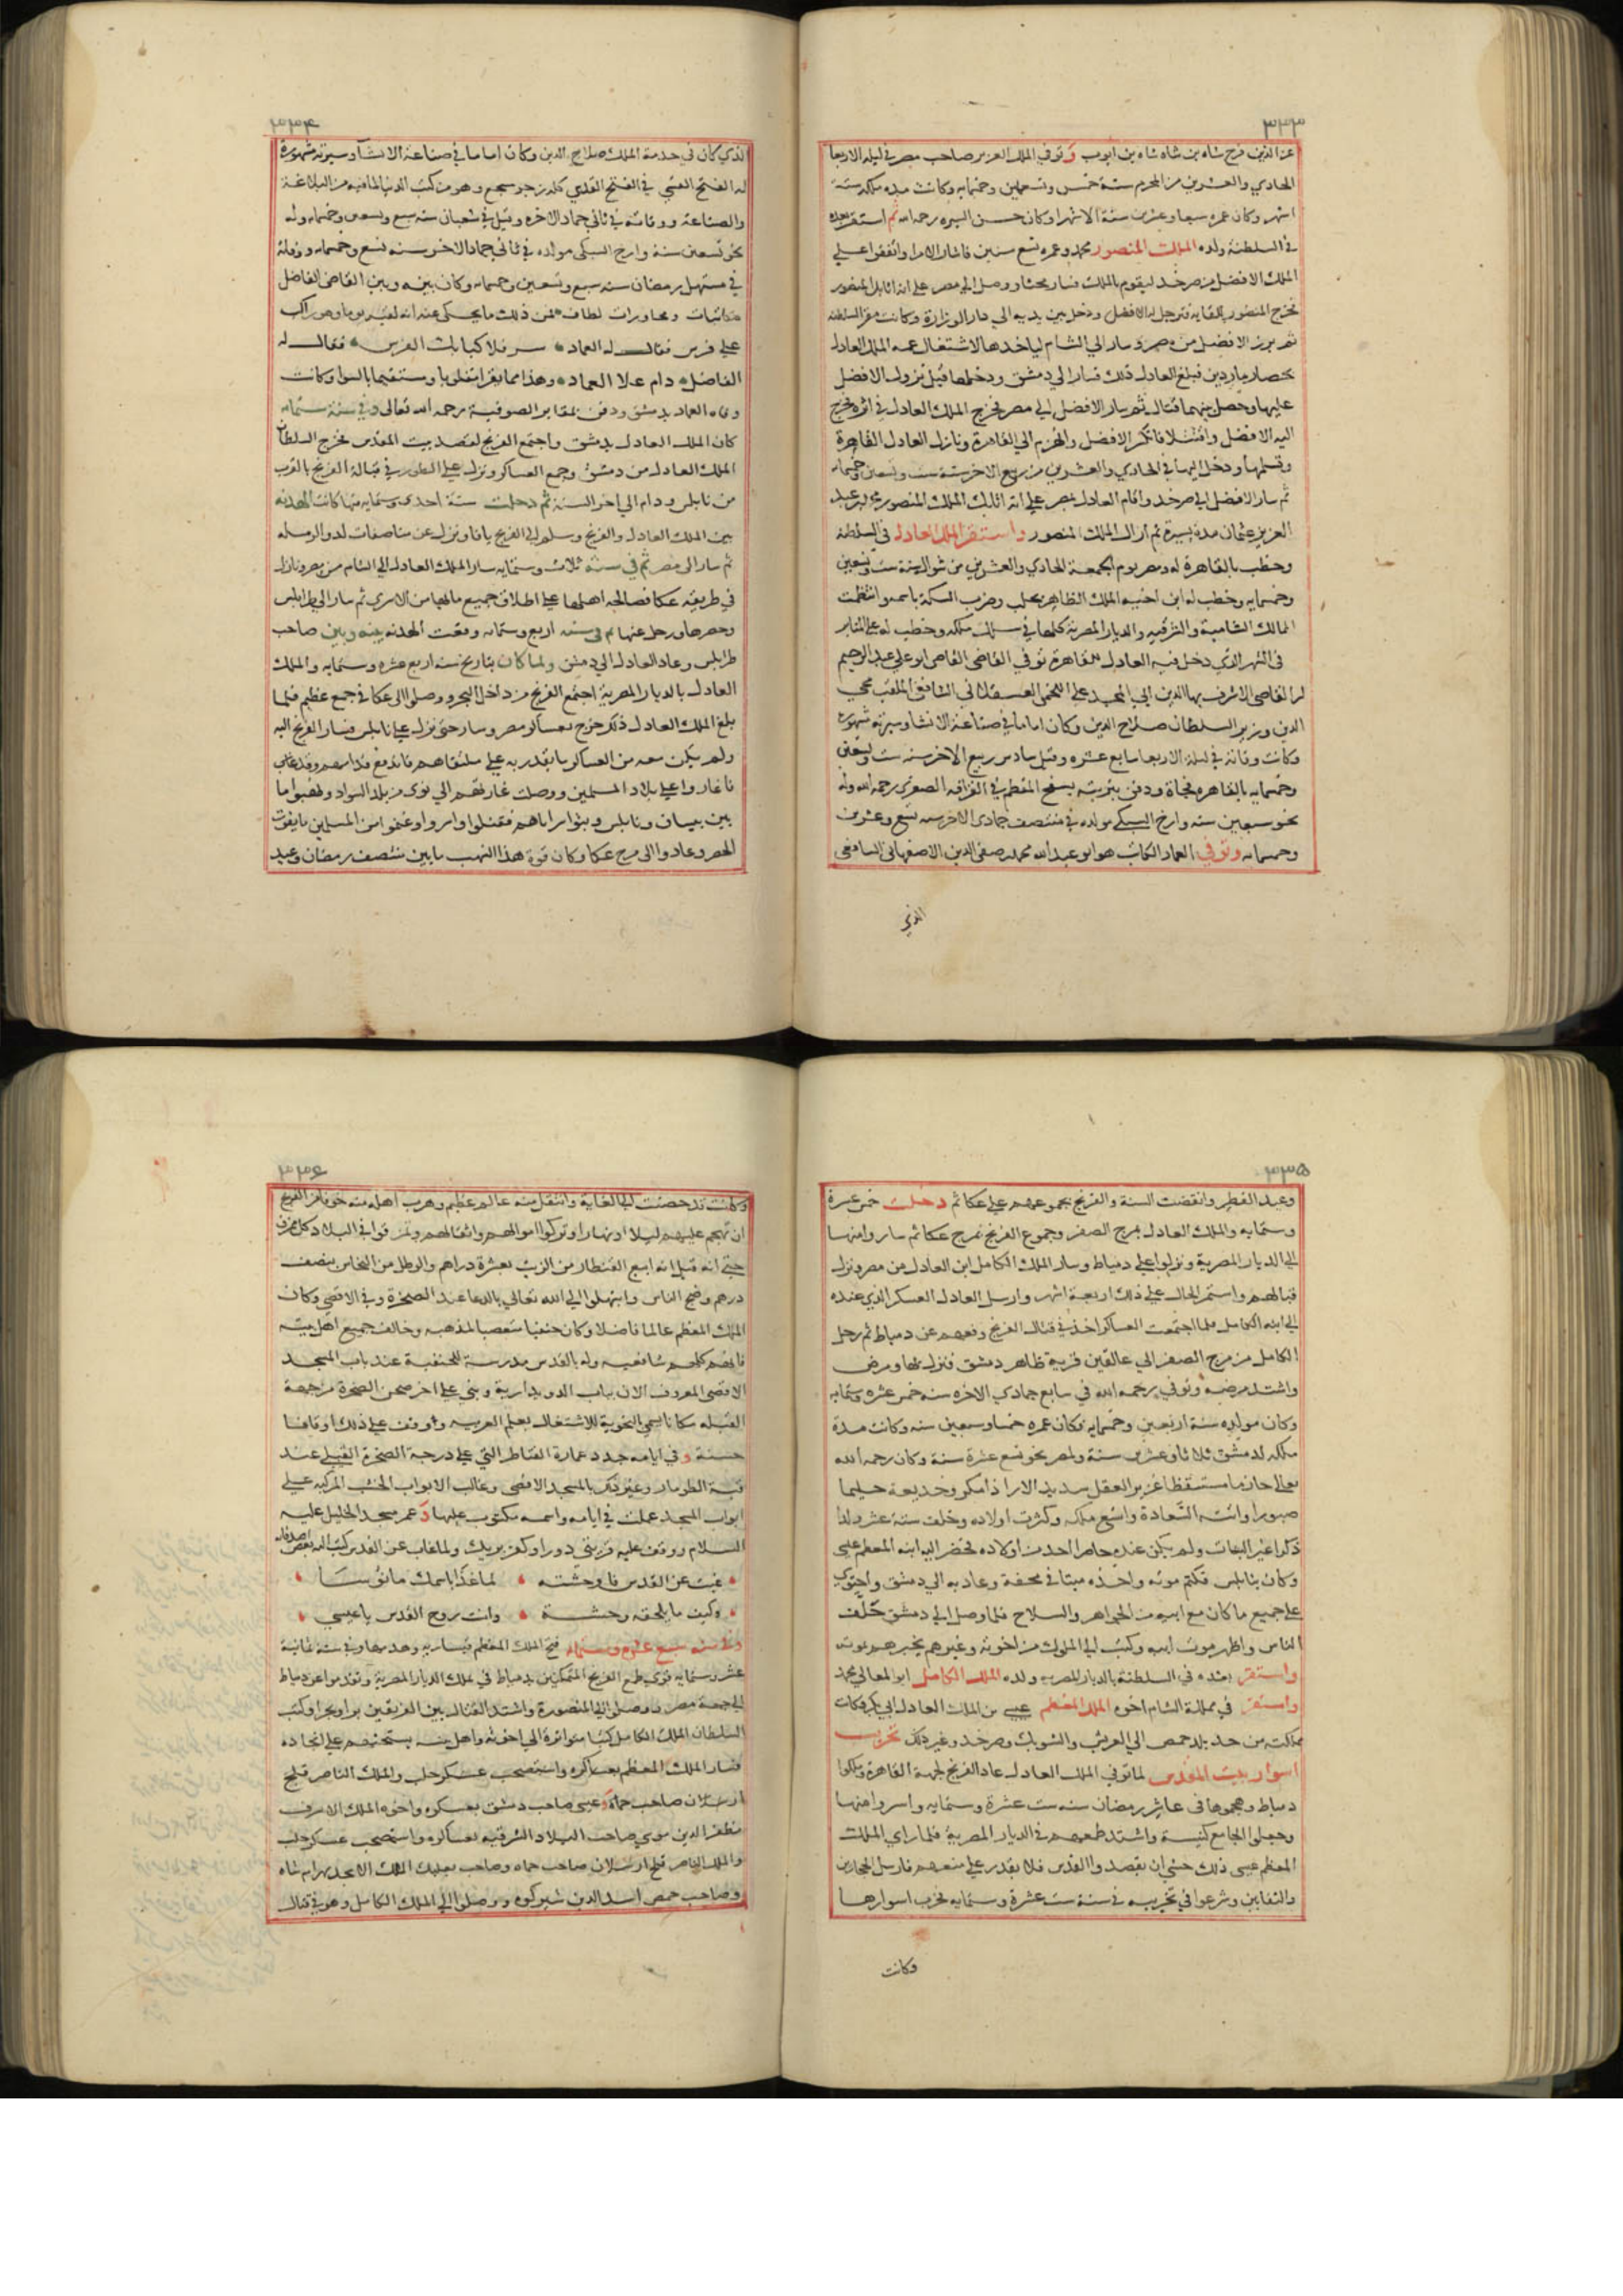 ٣٣٣
عز الدين فرخ شاه بن شاه شاه بن ايوب وتوفي الملك العزيز صاحب مصر في ليلة الاربعا
الحادي والعشرين من المحرم سنة خمس وتسعين وخمسمايه وكانت مدة ملكه ستة
اشهر وكان عمره سبعا وعشرين سنة الا شهرا وكان حسن السيره رحمه الله ثم استقر بعده
في السلطنة ولده الملك المنصور محمد وعمره تسع سنين فاشار الامرا واتفقوا على
الملك الافضل من صرخد ليقوم بالملك فسار محثا ووصل الى مصر على انه اتابك المنصور
فخرج المنصور للقايه فترجل له الافضل ودخل بين يديه الى دار الوزارة وكانت مقر السلطنة
ثم برز الافضل من مصر وسار الى الشام لياخدها لاشتغال عمه الملك العادل
بحصار ماردين فبلغ العادل ذلك فسار الى دمشق ودخلها قبل نزول الافضل
عليها وحصل بينهما قتال ثم سار الافضل الى مصر فخرج الملك العادل في اثره فخرج
اليه الافضل واقتتلا فانكسر الافضل وانهزم الى القاهرة ونازل العادل القاهرة
وتسلمها ودخل اليها في الحادي والعشرين من ربيع الاخر سنة ست وتسعين وخمسمايه
ثم سار الافضل الى صرخد واقام العادل بمصر على انه اتابك الملك المنصور محمد بن
العزيز عثمان مدة يسيرة ثم ازال الملك المنصور واستقر الملك العادل في السلطنة
وخطب بالقاهرة له ومصر يوم الجمعة الحادي والعشرين من شوال سنة ست وتسعين
وخمسمايه وخطب له ابن اخيه الملك الظاهر بحلب وضرب السكة باسمه وانتظمت
الممالك الشامية والشرقيه والديار المصرية كلها في سلك ملكه وخطب له على المنابر
في الشهر الذي دخل فيه العادل للقاهرة توفي القاضي الفاضل ابو علي عبد الرحيم
القاضي الاشرف بها الدين ابي المجد علي اللخمي العسقلاني الشافعي الملقب محي
الدين وزير السلطان صلاح الدين وكان اماما في صناعة الانشا وسيرته مشهوره
وكانت وفاته في ليلة الاربعا سابع عشره وقيل سادس ربيع الاخر سنه ست وتسعين
وخمسمايه بالقاهره فجاة ودفن بتربته بسفح المقطم في القرافه الصغرى رحمه الله وله
نحو سبعين سنه وارخ السبكي مولده في منتصف جمادى الاخر سنه تسع وعشرين
وخمسمايه وتوفي العماد الكاتب هو ابو عبد الله محمد بن صفي الدين الاصفهاني الشافعي
الذي
٣٣٤
الذي كان في خدمة الملك صلاح الدين وكان اماما في صناعة الانشآ وسيرته مشهورة
له الفتح القسي في الفتح القدسي كله رجز سجع وهو من كتب الدنيا لما فيه من البلاغة
والصناعة ووفاته في ثاني جماد الاخره وقيل في شعبان سنه سبع وتسعين وخمسمايه وله
نحو تسعين سنة وارخ السبكي مولده في ثاني جماد الاخر سنه تسع وخمسمايه ووفاته
في مستهل رمضان سنه سبع وتسعين وخمسمايه وكان بينه وبين القاضي الفاضل
مكاتبات ومحاورات لطاف فمن ذلك ما يحكى عنه انه لقيه يوما وهو راكب
على فرس فقال له العماد سر فلا كبا بك الفرس فقال له
الفاضل دام علا العماد وهذا مما يقرا مقلوبا ومستقيما بالسوا وكانت
وفاه العماد بدمشق ودفن بمقابر الصوفية رحمه الله تعالى وفي سنة ستمايه
كان الملك العادل بدمشق واجتمع الفرنج لقصد بيت المقدس فخرج السلطان
الملك العادل من دمشق وجمع العساكر ونزل على الطور في قبالة الفرنج بالقرب
من نابلس ودام الى اخر السنة ثم دخلت سنة احدى وستمايه فيها كانت الهدنه
بين الملك العادل والفرنج وسلم الى الفرنج يافا ونزل عن مناصفات لد والرمله
ثم سار الى مصر ثم في سنة ثلاث وستمايه سار الملك العادل الى الشام من مصر ونازل
في طريقه عكا فصالحه اهلها على اطلاق جميع ما لها من الاسرى ثم سار الى طرابلس
وحصرها ورحل عنها ثم في سنه اربع وستمايه وقعت الهدنه بينه وبين صاحب
طرابلس وعاد العادل الى دمشق ولما كان بتاريخ سنه اربع عشره وستمايه والملك
العادل بالديار المصرية اجتمع الفرنج من داخل البحر ووصلوا الى عكا في جمع عظيم فلما
بلغ الملك العادل ذلك خرج بعساكر مصر وسار حتى نزل على نابلس فسار الفرنج اليه
ولم يكن معه من العساكر ما يقدر به على ملتقاهم فاندفع قدامهم
فاغاروا على بلاد المسلمين ووصلت غارتهم الى نوى من بلد السواد ونهبوا ما
بين بيسان ونابلس وبثوا سراياهم فقتلوا واسروا وغنموا من المسلمين ما يفوت
الحصر وعادوا الى مرج عكا وكان قوة هذا النهب ما بين منتصف رمضان وعيد
٣٣٥
وعيد الفطر وانقضت السنة والفرنج بجموعهم على عكا ثم دخلت خمس عشرة
وستمايه والملك العادل بمرج الصفر وجموع الفرنج بمرج عكا ثم ساروا منها
الى الديار المصرية ونزلوا على دمياط وسار الملك الكامل ابن العادل من مصر ونزل
قبالهم واستمر الحال على ذلك اربعة اشهر وارسل العادل العسكر الذي عنده
الى ابنه الكامل فلما اجتمعت العساكر اخذ في قتال الفرنج ودفعهم عن دمياط ثم رحل
الكامل من مرج الصفر الى عالقين قرية ظاهر دمشق فنزل بها ومرض
واشتد مرضه وتوفي رحمه الله في سابع جمادي الاخره سنه خمس عشره وستمايه
وكان مولده سنة اربعين وخمسمايه فكان عمره خمسا وسبعين سنه وكانت مدة
ملكه لدمشق ثلاثا وعشرين سنة ولمصر نحو تسع عشرة سنة وكان رحمه الله
تعالى حازما متيقظا غزير العقل سديد الارا ذا مكر وخديعة حليما
صبورا واتته السعادة واتسع ملكه وكثرت اولاده وخلف ستة عشر ولدا
ذكرا غير البنات ولم يكن عنده حاضرا احد من اولاده فحضر اليه ابنه المعظم عيسى
وكان بنابلس فكتم موته واخذه ميتا في محفة وعاد به الى دمشق واحتوى
على جميع ما كان مع ابيه من الجواهر والسلاح فلما وصل الى دمشق حلف
الناس واظهر موت ابيه وكتب الى الملوك من اخوته وغيرهم يخبرهم بموته
واستقر بعده في السلطنة بالديار المصريه ولده الملك الكامل ابو المعالي محمد
واستقر في مملكة الشام اخوه الملك المعظم عيسى بن الملك العادل ابي بكر فكانت
مملكته من حد بلد حمص الى العريش والشوبك وصرخد وغير ذلك تخريب
اسوار بيت المقدس لما توفي الملك العادل عاد الفرنج لجهة القاهرة وملكوا
دمياط وهجموها في عاشر رمضان سنه ست عشرة وستمايه واسروا منها
وجعلوا الجامع كنيسة واشتد طمعهم في الديار المصرية فلما راى الملك
المعظم عيسى ذلك خشي ان يقصدوا القدس فلا يقدر على منعهم فارسل الحجارين
والنقابين وشرعوا في تخريبه في سنة ست عشرة وستمايه فخرب اسوارها
وكانت
٣٣٦
وكانت قد حصنت الى الغاية وانتقل منه عالم عظيم وهرب اهله منه خوفا من الفرنج
ان تهجم عليهم ليلا او نهارا وتركوا اموالهم واثقالهم وتمزقوا في البلاد كل ممزق
حتى انه قيل انه ابيع القنطار من الزيت بعشرة دراهم والرطل من النحاس بنصف
درهم وضج الناس وابتهلوا الى الله تعالى بالدعا عند الصخرة وفي الاقصى وكان
الملك المعظم عالما فاضلا وكان حنفيا متعصبا لمذهبه وخالف جميع اهل بيته
فانهم كلهم شافعيه وله بالقدس مدرسة للحنفية عند باب المسجد
الاقصى المعروف الان بباب الدويدارية وبنى على اخر صحن الصخرة من جهة
القبله مكانا يسمى النحوية للاشتغال بعلم العربيه ووقف على ذلك اوقافا
حسنة وفي ايامه جدد عمارة القناطر التي على درجة الصخرة القبلي عند
قبة الطومار وغير ذلك بالمسجد الاقصى وغالب الابواب الخشب المركبه على
ابواب المسجد عملت في ايامه واسمه مكتوب عليها وعمر مسجد الخليل عليه
السلام ووقف عليه قريتي دورا وكفر بريك ولما غاب عن القدس كتب اليه بعض اصدقائه
غبت عن القدس فاوحشته لما غدا باسمك مانوسا
وكيف ما يلحقه وحشة وانت روح القدس يا عيسى
وفي سنه سبع عشره وستمايه فتح الملك المعظم قيساريه وهدمها وفي سنة ثمانية
عشر وستمايه قوي طمع الفرنج المتملكين بدمياط في ملك الديار المصرية وتقدموا عن دمياط
الى جهة مصر ووصلوا الى المنصورة واشتد القتال بين الفريقين برا وبحرا وكتب
السلطان الملك الكامل كتبا متواترة الى اخوته واهل بيته يستحثهم على انجاده
فسار الملك المعظم بعساكره واستصحب عسكر حلب والملك الناصر قليج
ارسلان صاحب حماة وعيسى صاحب دمشق بعسكره واخوه الملك الاشرف
مظفر الدين موسى صاحب البلاد الشرقيه بعساكره واستصحب عسكر حلب
والملك الناصر قليج ارسلان صاحب حماه وصاحب بعلبك الملك الامجد بهرام شاه
وصاحب حمص اسد الدين شيركوه ووصلوا الى الملك الكامل وهو في قتال